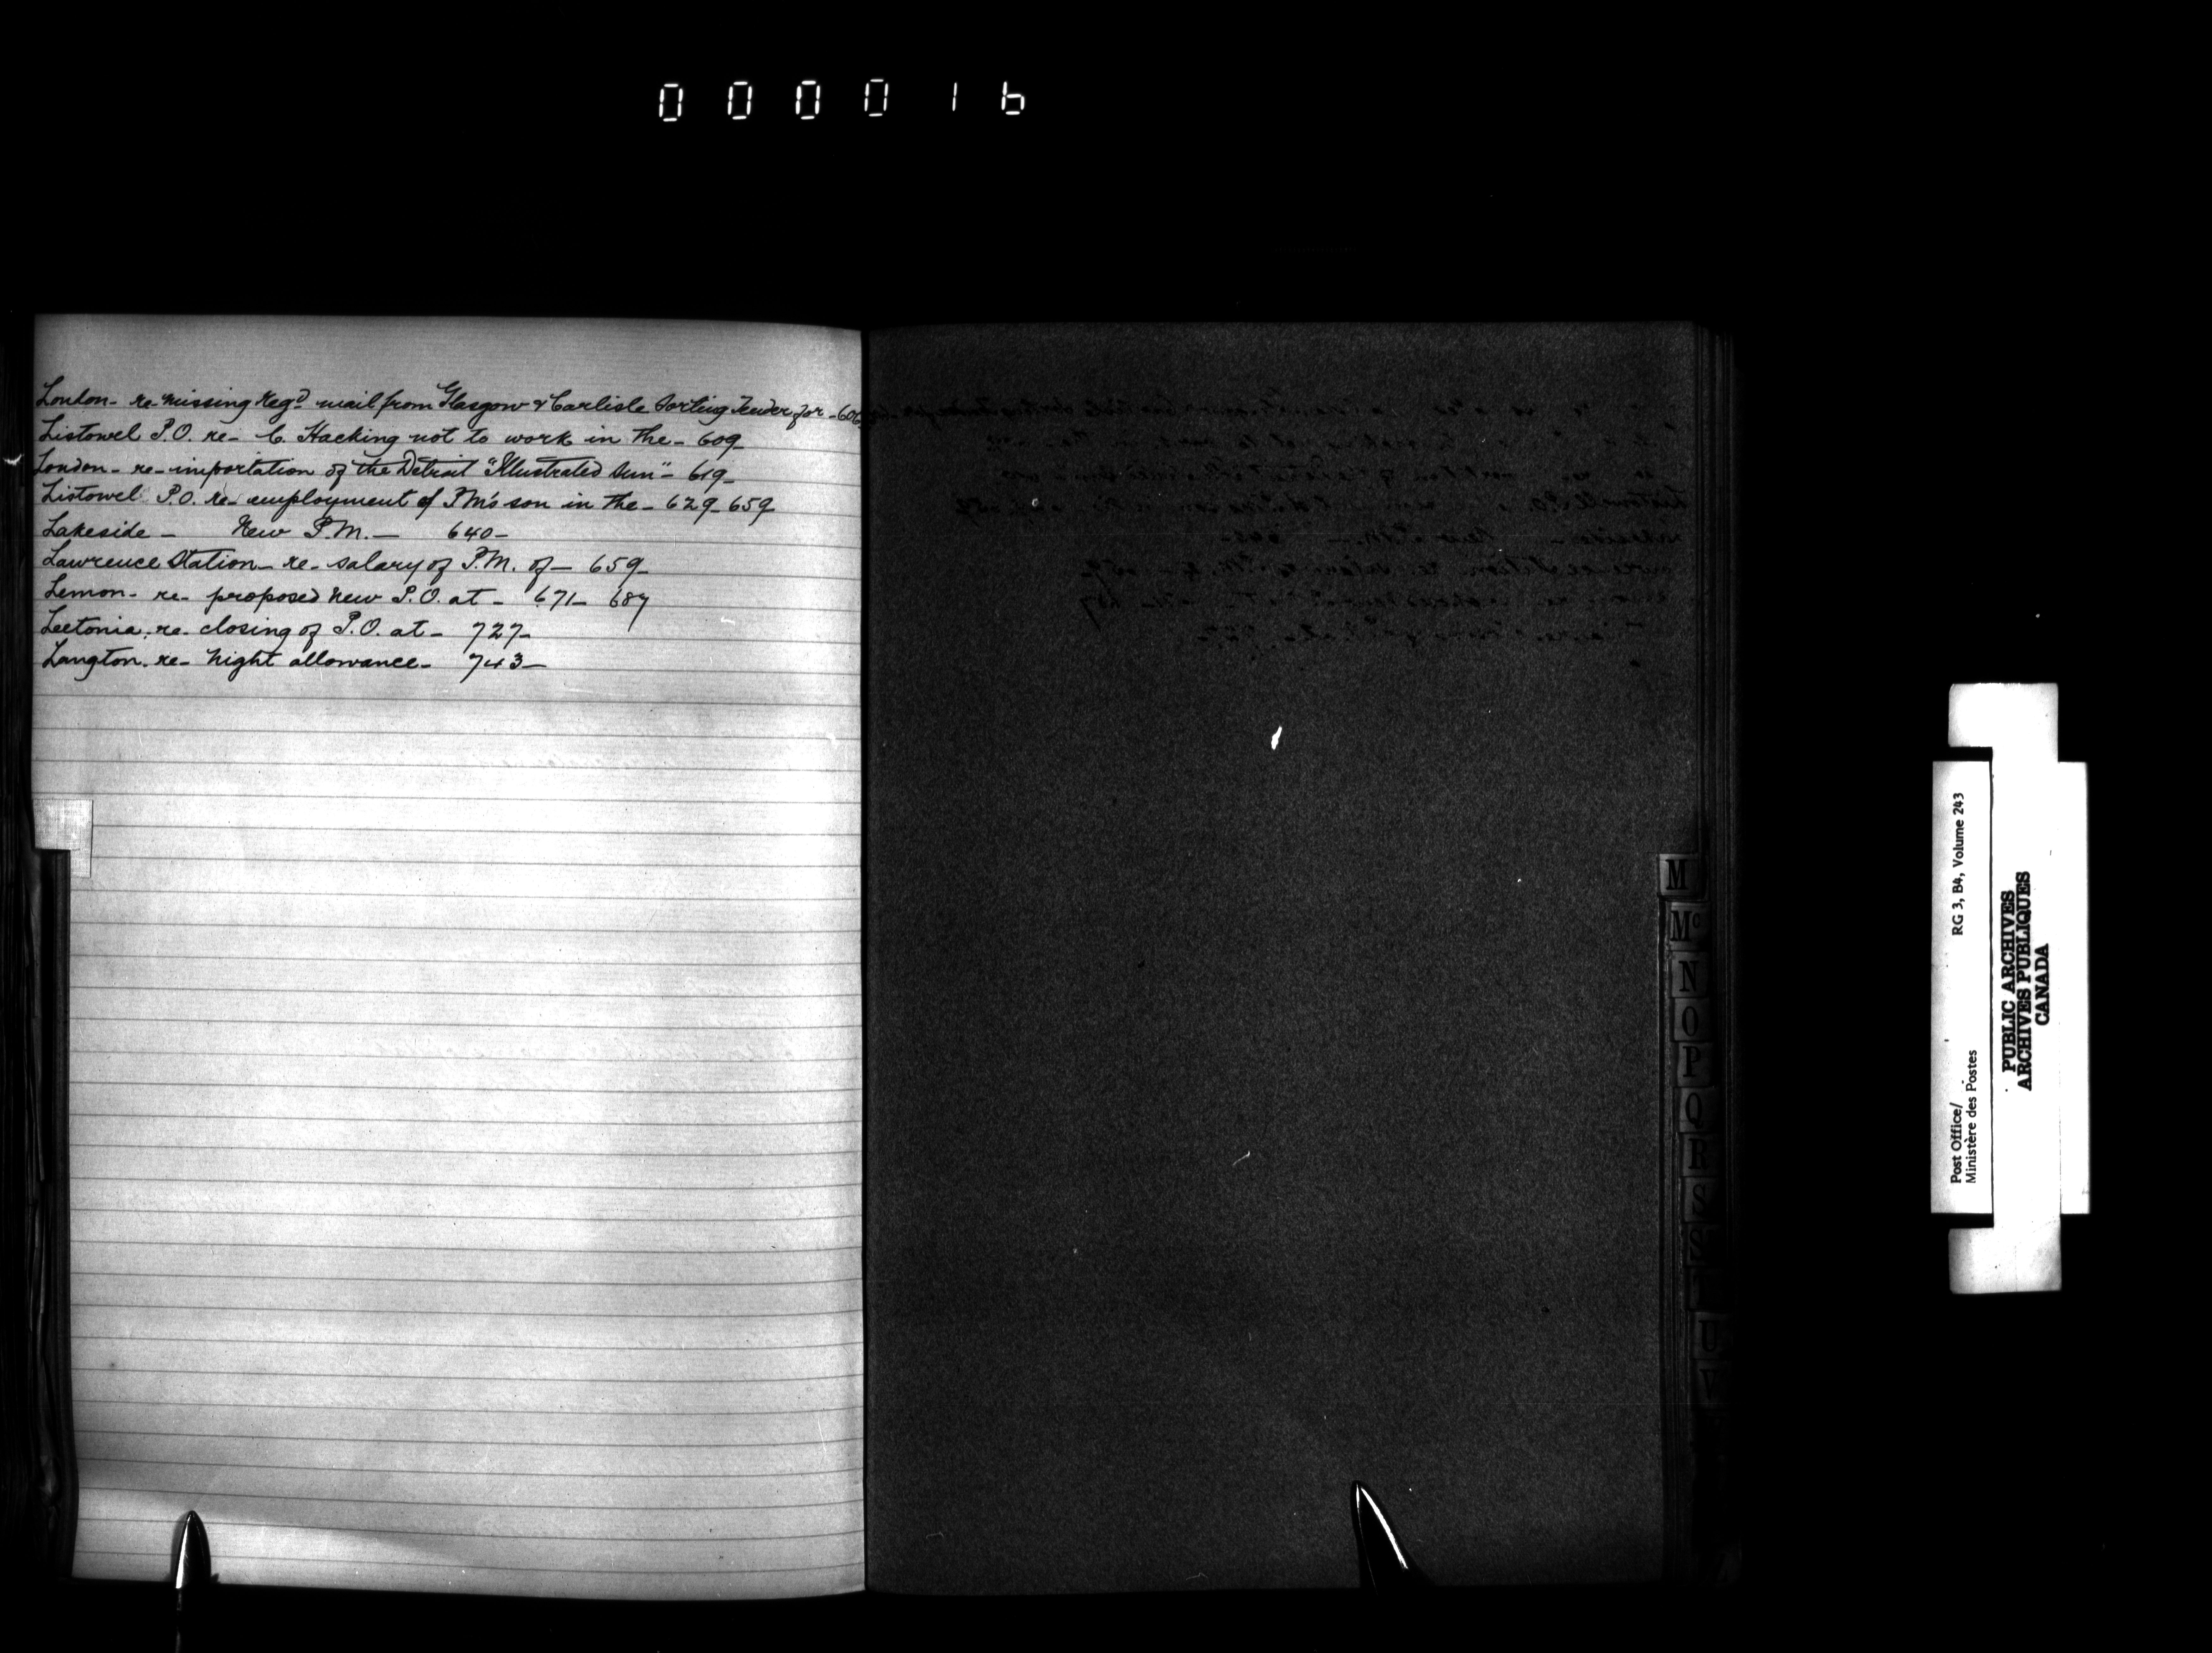 000016
London- re- missing Regd mail from Glasgow & Carlisle Sorting Tender for -606
Listowel P.O. re- C. Hacking not to work in the- 609-
London- re- importation of the Detroit "Illustrated Sun"- 619-
Listowel P.O. re- employment of PM's son in the- 629- 659
Lakeside- New P.M.- 640-
Lawrence Station- re- salary of P.M. of- 659-
Lemon- re- proposed new P.O. at- 671- 687
Leetonia. re- closing of P.O. at- 727-
Langton. re- night allowance- 743-
M
Mc
N
O
P
Q
R
S
U
V
Post Office/
Ministère des Postes
RG 3, B4, Volume 243
PUBLIC ARCHIVES
ARCHIVES PUBLIQUES
CANADA